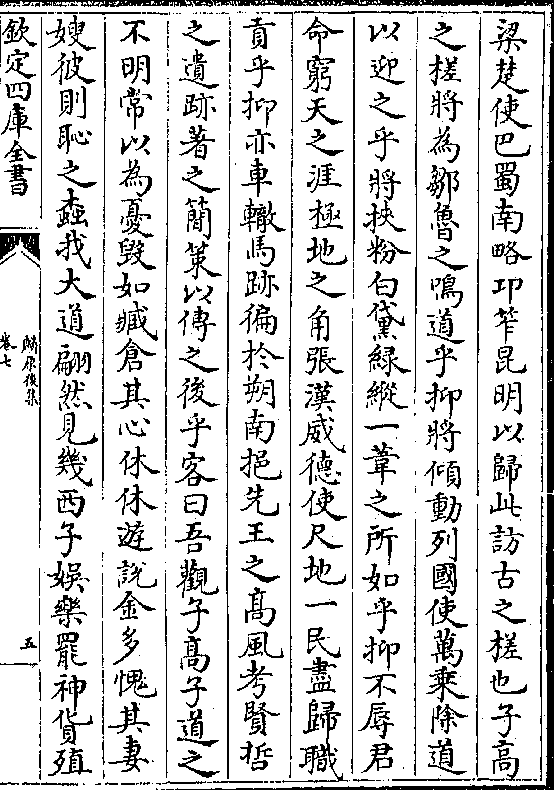 梁楚使巴蜀南略卭笮昆明以歸此訪古之槎也子高
之槎將為鄒魯之鳴道乎抑將傾動列國使萬乘除道
以迎之乎將挾粉白黛緑縱一葦之所如乎抑不辱君
命窮天之涯極地之角張漢威德使尺地一民盡歸職
貢乎抑亦車轍馬跡徧於朔南挹先王之髙風考賢哲
之遺跡著之簡策以傳之後乎客曰吾觀子髙子道之
不明常以為憂毀如臧倉其心休休遊説金多愧其妻
嫂彼則恥之蠧我大道翩然見幾西子娯樂罷神貨殖
欽定四庫全書
麟原後集
卷七
五